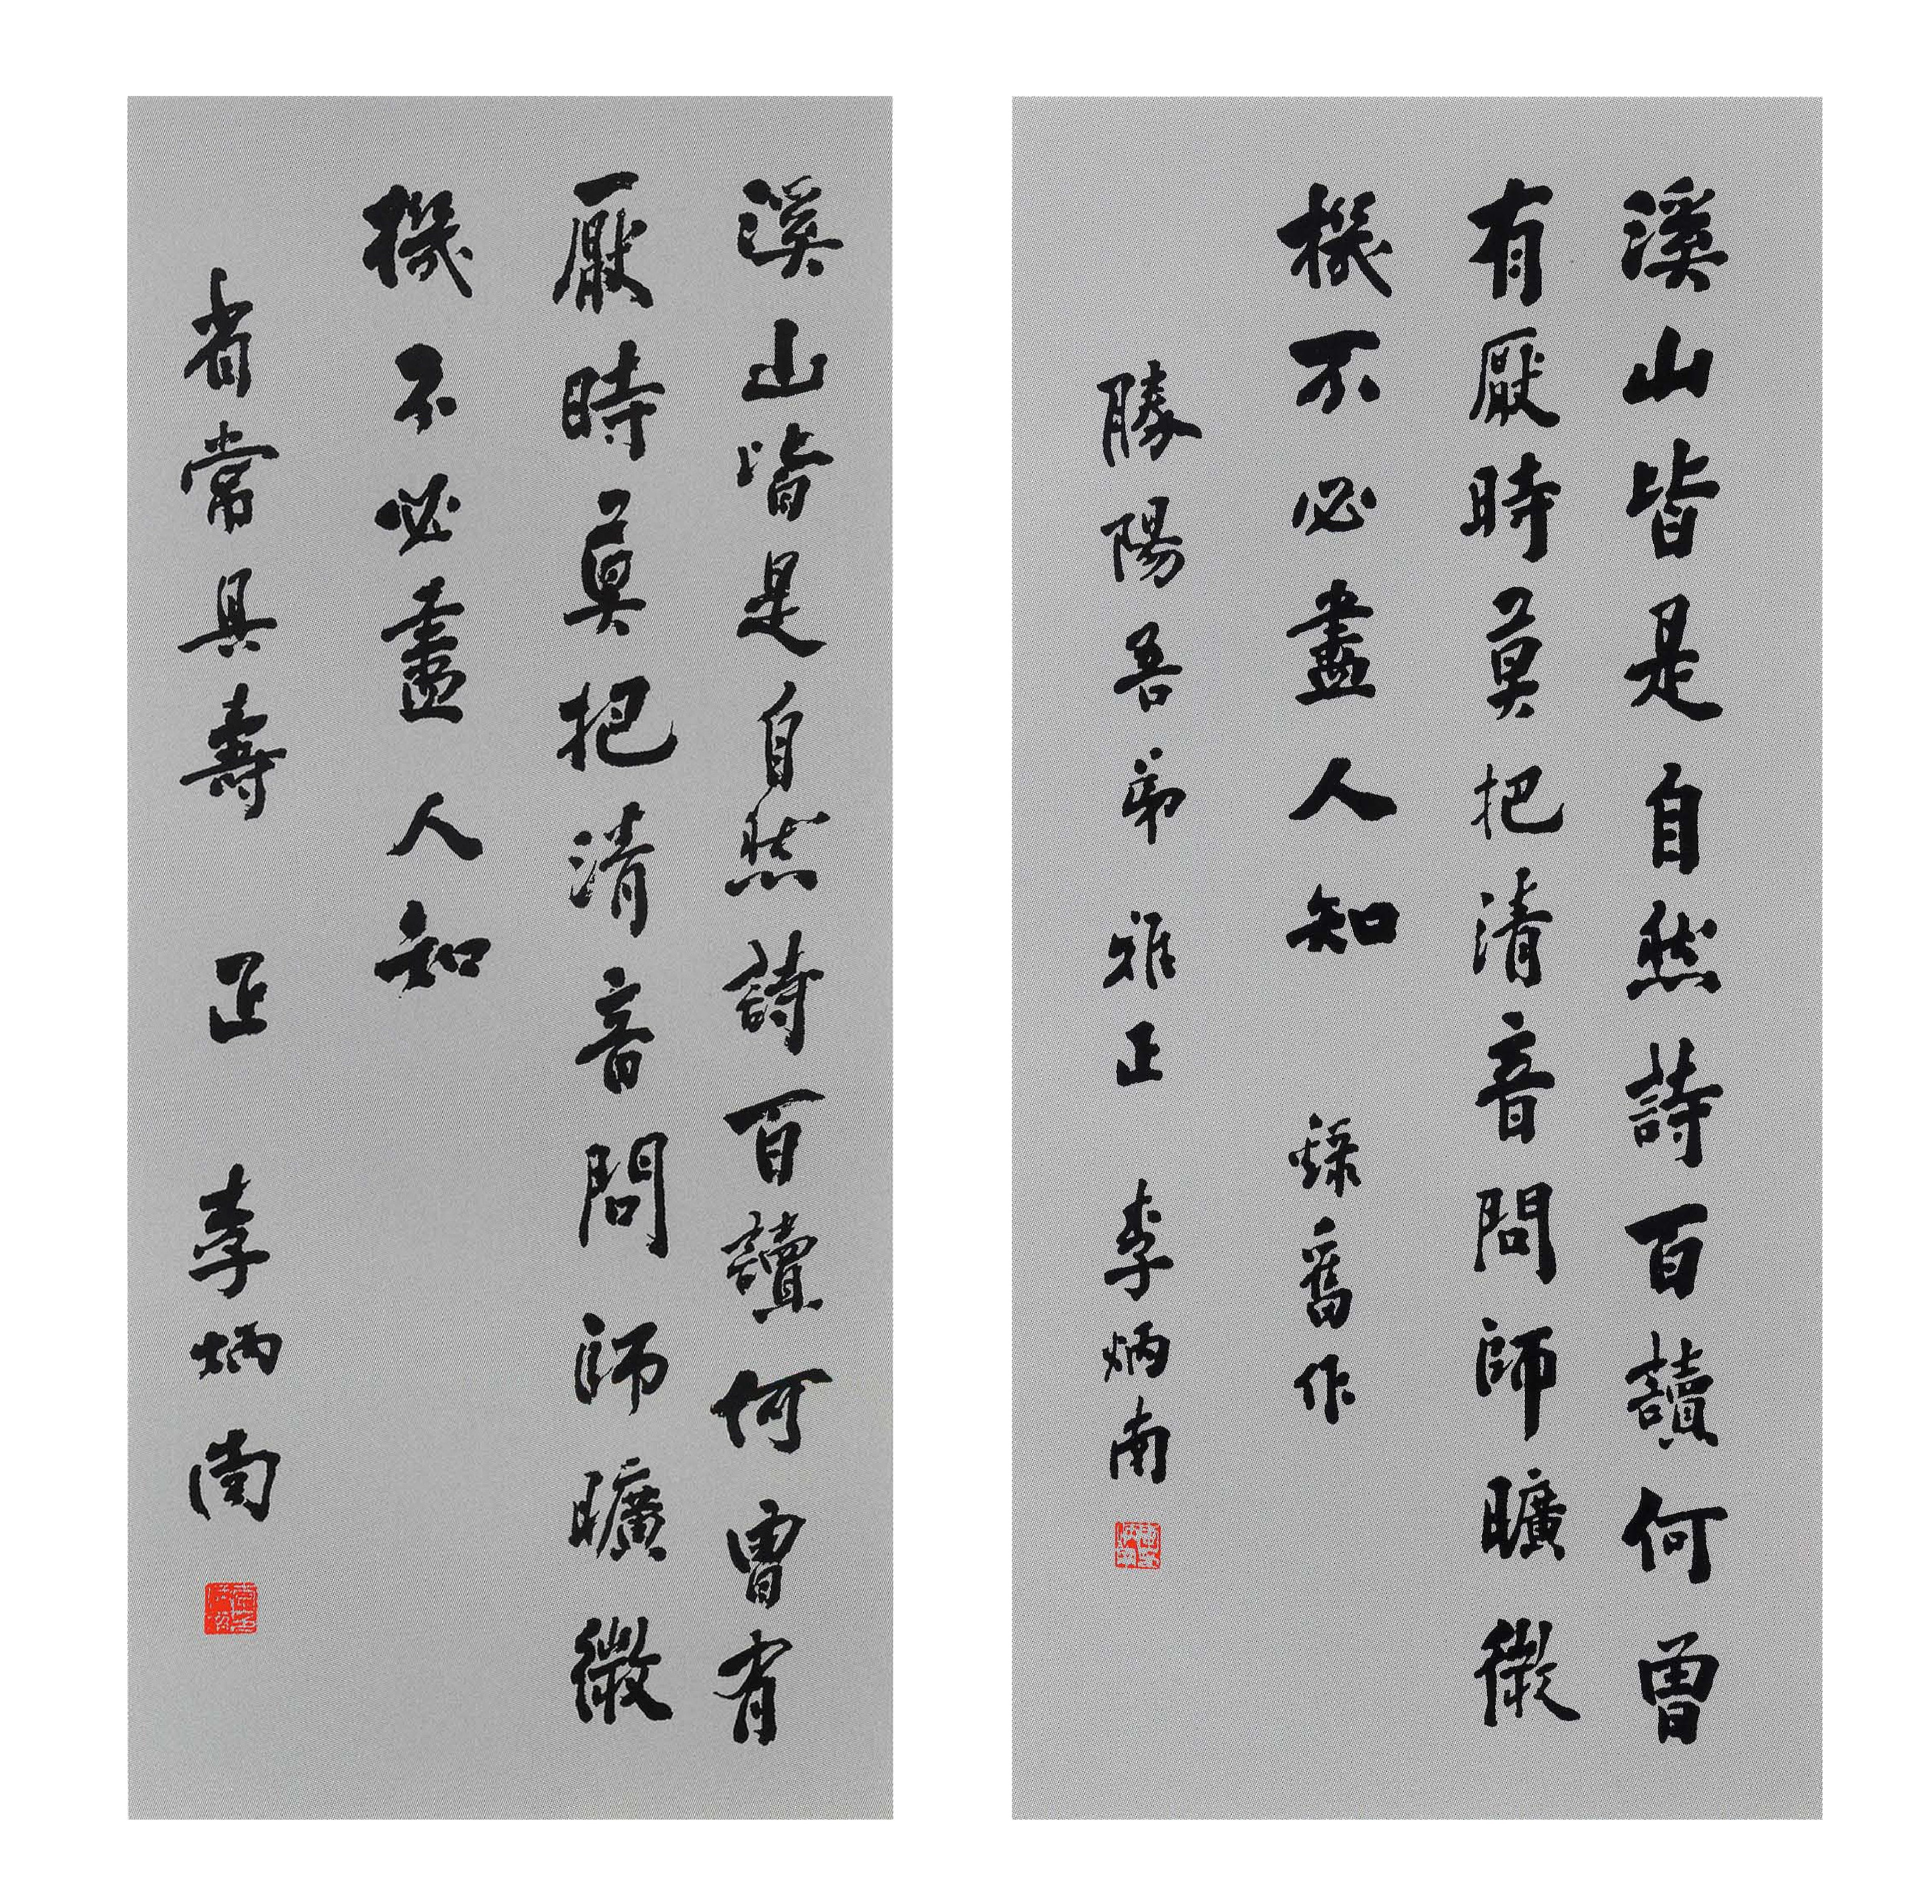 溪山皆是自然詩百讀何曾
有厭時莫把清音問師曠微
機不必盡人知　錄舊作
勝陽吾弟雅正　李炳南
溪山皆是自然詩百讀何曾有
厭時莫把清音問師曠微
機不必盡人知
省常具壽　正　李炳南